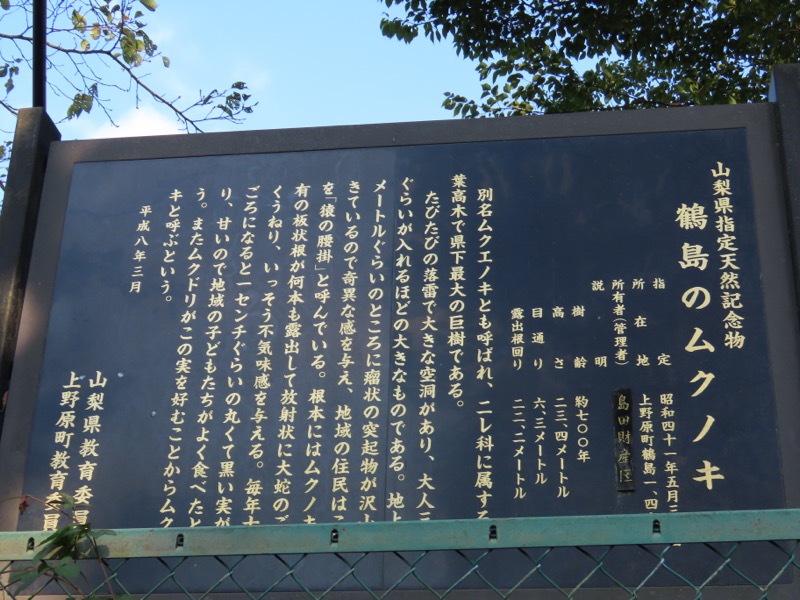 山梨県指定天然記念物
鶴島のムクノキ
指定 昭和四十一年五月三
所在地 上野原町鶴島一、四
所有者(管理者) 島田財産区
説明
樹齢 約七〇〇年
高さ 二三、四メートル
目通り 六、三メートル
露出根回り 二二、二メートル
別名ムクエノキとも呼ばれ、ニレ科に属する
葉高木で県下最大の巨樹である。
たびたびの落雷で大きな空洞があり、大人三
ぐらいが入れるほどの大きなものである。地上
メートルぐらいのところに瘤状の突起物が沢山
きているので奇異な感を与え、地域の住民はこ
を「猿の腰掛」と呼んでいる。根本にはムクノキ
有の板状根が何本も露出して放射状に大蛇のご
くうねり、いっそう不気味感を与える。毎年十
ごろになると一センチぐらいの丸くて黒い実が
り、甘いので地域の子どもたちがよく食べたと
う。またムクドリがこの実を好むことからムク
キと呼ぶという。
平成八年三月
山梨県教育委員
上野原町教育委員